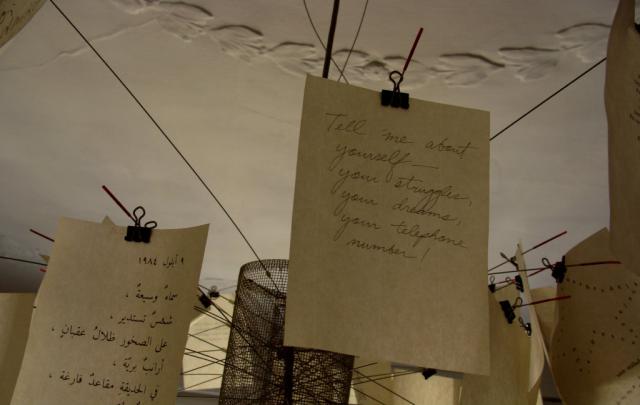 Tell me about
yourself—
your struggles,
your dreams,
your telephone
number!
٩ أيلول ١٩٨٤
سماءٌ وسيعةٌ ،
شمسٌ تستدير ،
على الصخور ظلالُ عقبانٍ ،
أرانبُ بريّة ،
في الحديقةِ مقاعدُ فارغة ،